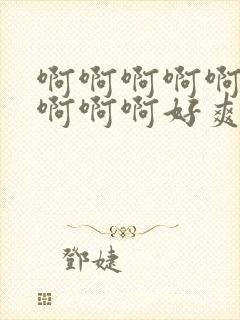 啊啊啊啊啊
啊啊啊好爽
鄧婕